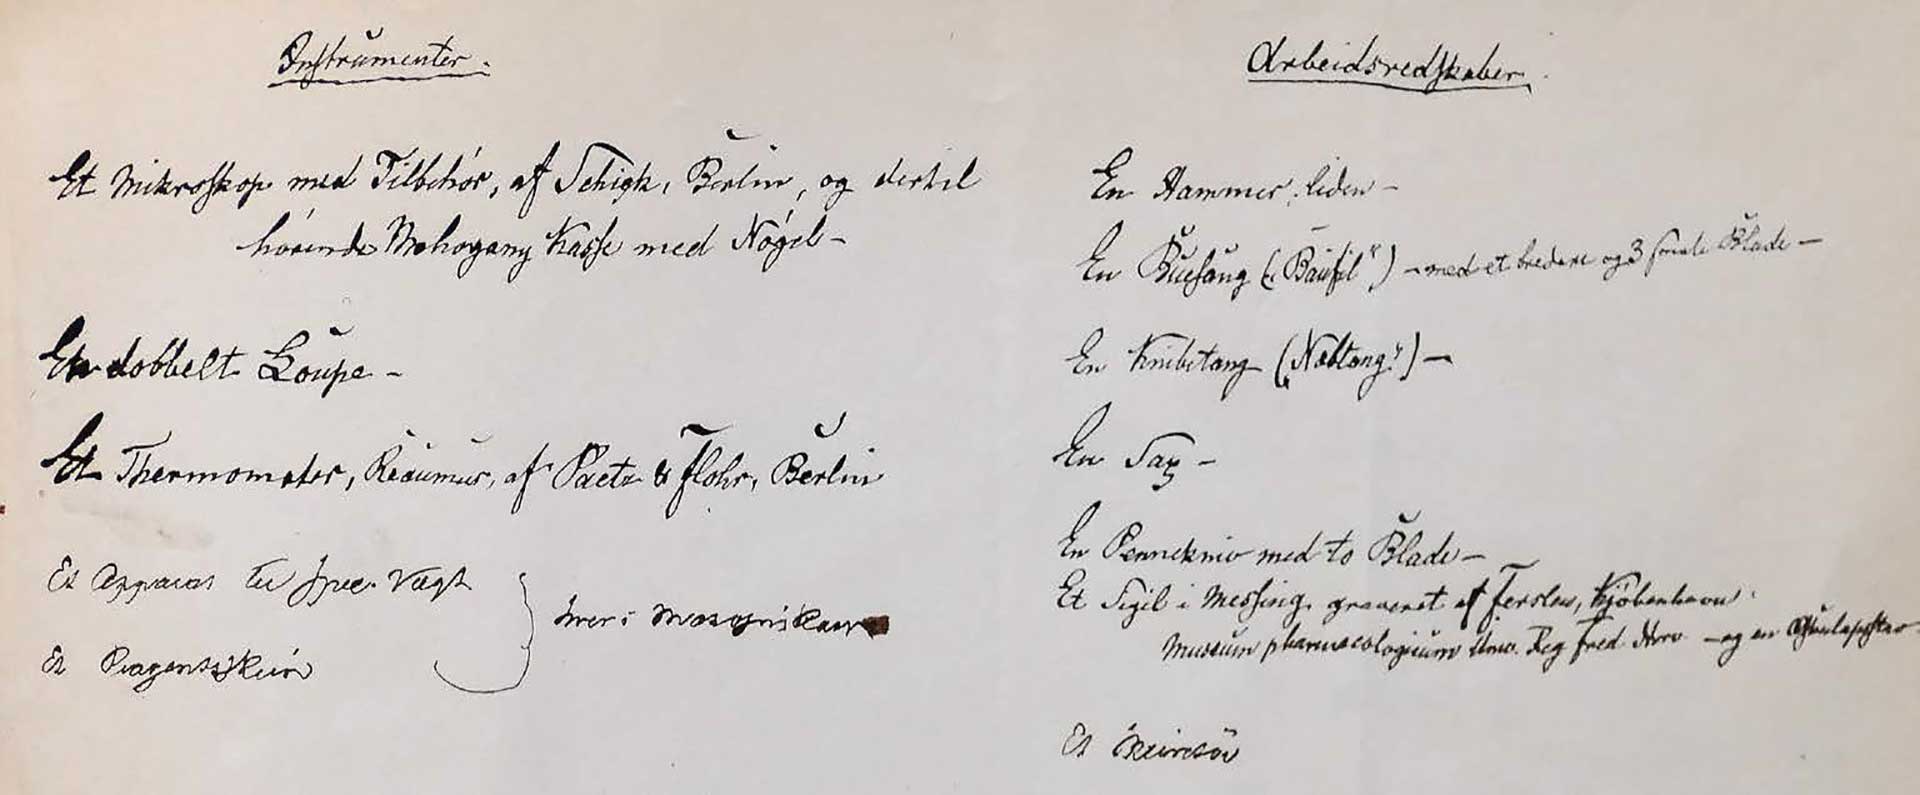 Instrumenter.
Et Mikroskop med Tilbehör, af Schiek, Berlin, og dertil
hörende Mahogany Kasse med Nögel –
En dobbelt Loupe –
Et Thermometer, Réaumur, af Paetz & Flohr, Berlin
Et Apparat til spec. Vægt
hver i
Et
Arbeidsredskaber.
En Hammer, liden –
En Buesaug („Bausil“) – med et bredere og 3 smale Blade –
En Knibetang („Nabtang“) –
En Sax –
En Penneknio med to Blade –
Et Sigil i Messing, graveret af Ferslew, Kjöbenhavn
Museum pharmacologicum Univ. Reg Fred. – og en
Et